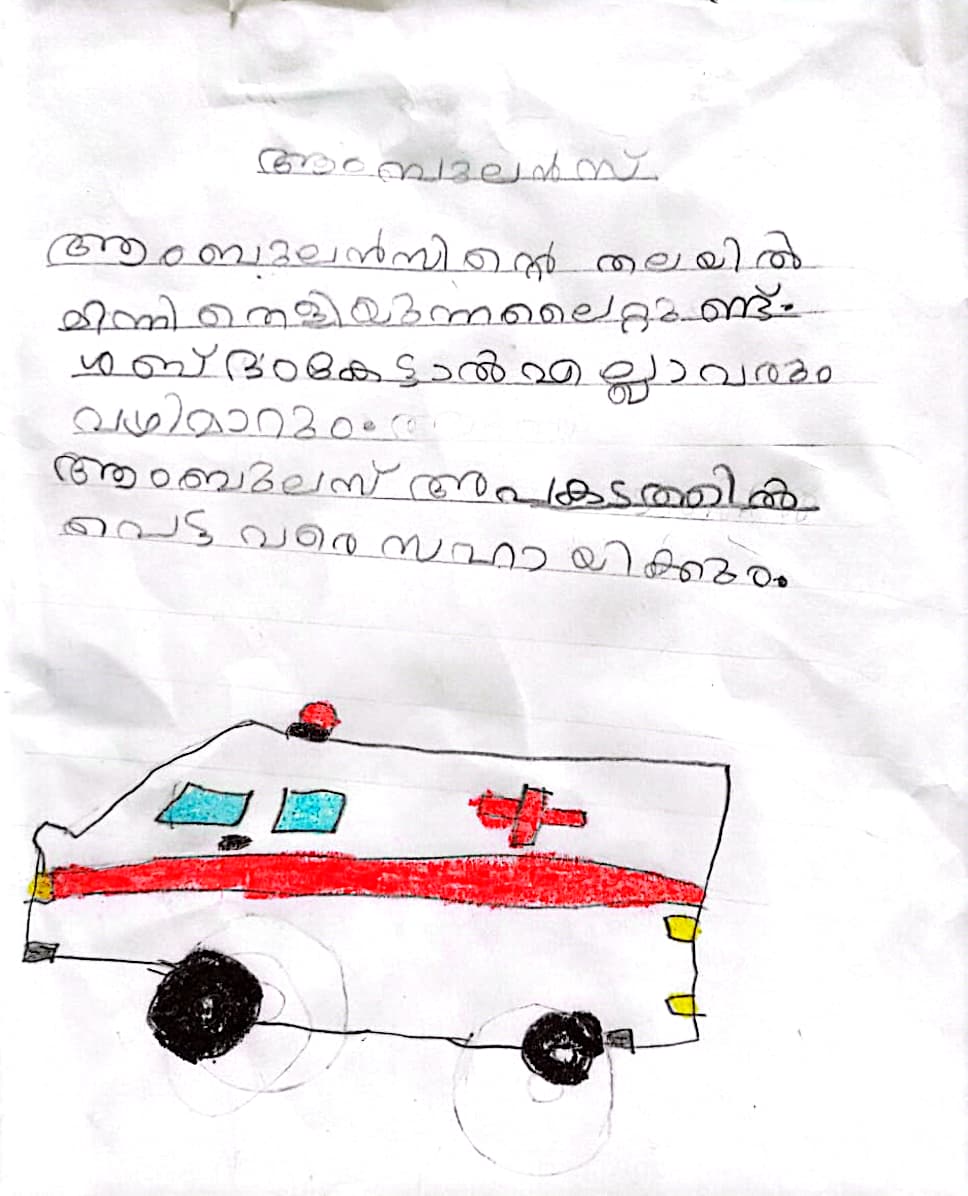 ആംബുലൻസ്
ആംബുലൻസിന്റെ തലയിൽ
മിന്നി തെളിയുന്നലൈറ്റുണ്ട്.
ശബ്ദംകേട്ടാൽ എല്ലാവരും
വഴിമാറും.
ആംബുലസ് അപകടത്തിൽ
പെട്ടവരെ സഹായിക്കും.